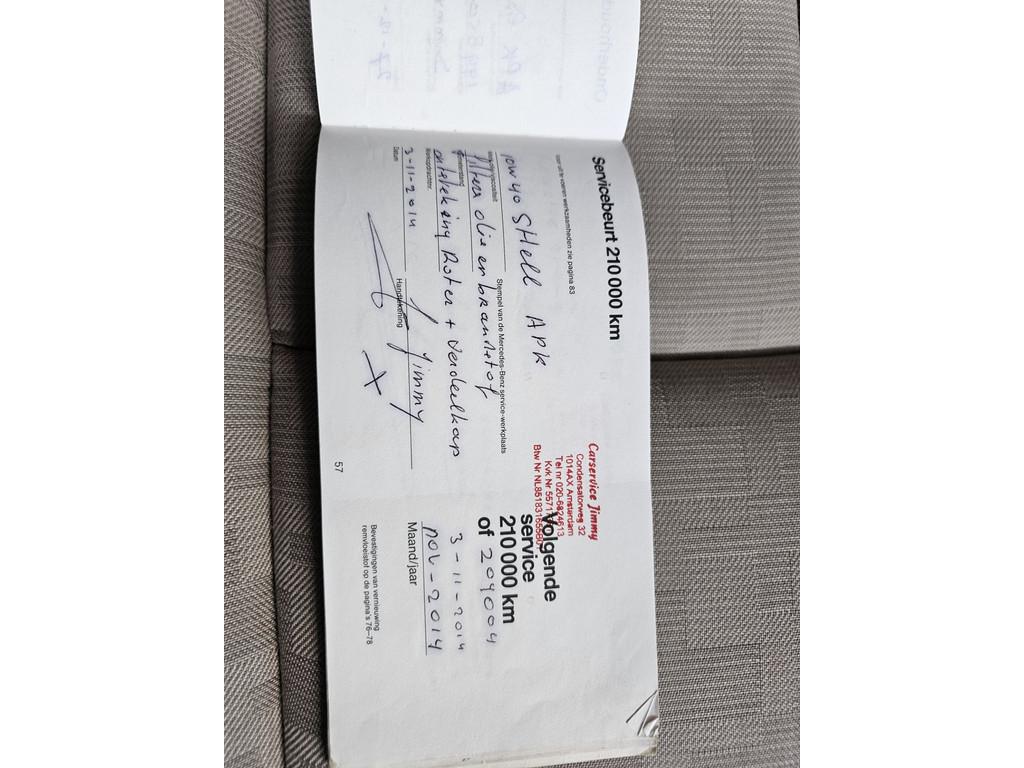 Servicebeurt 210 000 km
Voor uit te voeren werkzaamheden zie pagina 83
10W40 SHell APK
Stempel van de Mercedes-Benz service-werkplaats
filters olie en brandstof
ontsteking Rotor + Verdeelkap
Werkopdrachtnr.
3-11-2014
Jimmy
Datum
Handtekening
57
Carservice Jimmy
Condensatorweg 32
1014AX Amsterdam
Tel nr 020-6824613
Kvk Nr
Btw Nr
Volgende
service
210 000 km
of 204004
3-11-2014
nov-2014
Maand/jaar
Bevestigingen van vernieuwing
remvloeistof op de pagina's 76–78